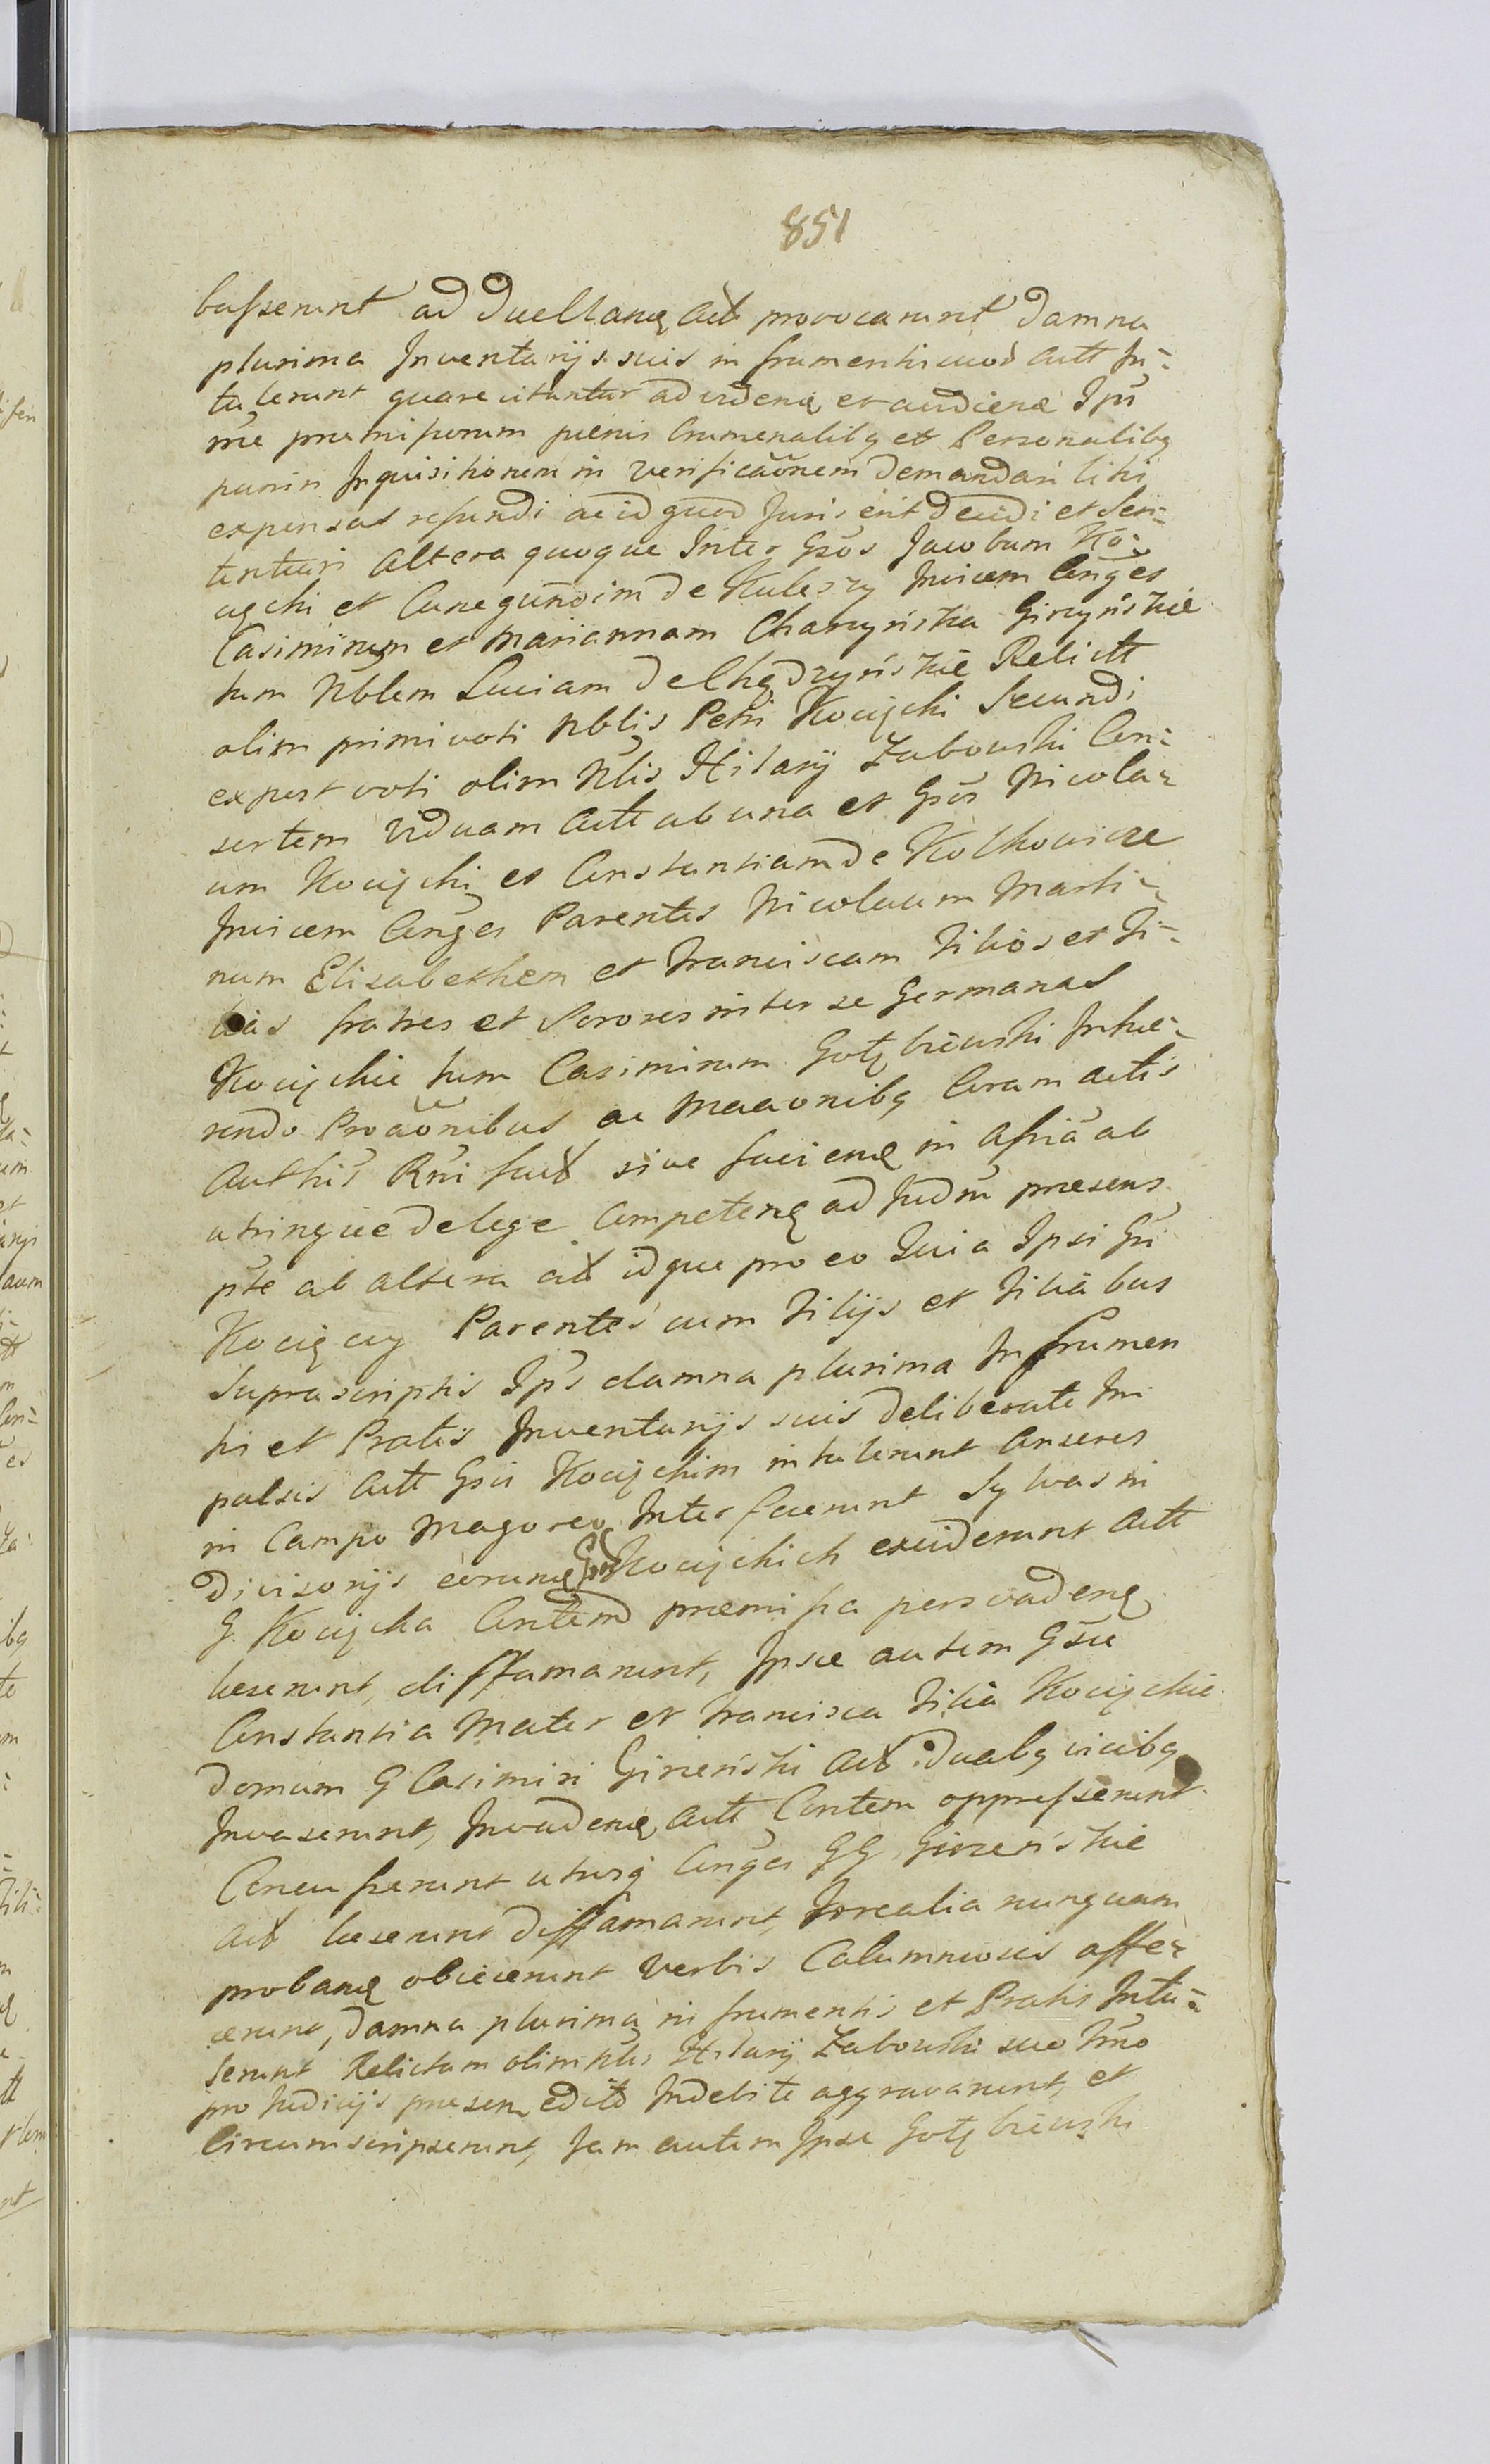 851
basserunt ad duellanę act provocarunt damna
plurima Inventarijs suis in frumenti act In=
tulerunt quare citantur ad videnę et audienę
praemissorum pænis Crumenalibq et Personalibq
puniri Inquisitionem in verificãonem demandari litis
expensas refundi ac id quod Juris erit decidi et Sen=
tentiari Altera quoque Inter Gsos Jacobum Ko=
et Cunegundim de Kuleszy Invicem Cnges
Casimirum et Mariannam Charzyńska Girzyńskie
tum Nblem Luciam de Chądzyńskie Relictt
olim primi voti Nblis Petri Kocięcki Secundi
ex post voti olim Nblis Hilarij Zabowski Con=
sortem Viduam Actt ab una et Gsos Nicola=
um Kocięcki et Constantiam de Kolkowicze
Invicem Cnges Parentes Nicolaum Marti=
num Elisabethem et Franciscam Filios et Fi=
lias fratres et Sorores inter se Germanas
Kocięckie tum Casimirum Gołębiewski Inhæ=
rendo Proãonibus ac Maãonibq Coram actis
Authis Rni fact sive facienę in Assia ab
utrinque de lege Competenę ad Judm præsens
pte ab altera cit idque pro eo Quia Ipsi Gsi
Kocięccy Parentes cum Filijs et Filiabus
Suprascriptis Ips damna plurima In frumen
tis et Pratis Inventarijs suis deliberate Im
pulsis Actt Gsa Kocięckim intulerunt Anseres
in Campo Inter fecerunt Sylvas in
divisorijs eorunę Gsor Kocięckich exciderunt Actt
G. Kocięcka præmissa persvadenę
læserunt, diffamarunt, Ipsæ autem Gsæ
Constantia Mater et Francisca Filia Kocięckie
domum G Casimiri Girzeński Act duabq vicibq
Invaserunt, Invadenę Actt oppresserunt
Concusserunt utrosq Cnges GG Girzeńskie
act læserunt diffamarunt, Irrealia nunquam
probanę obiecerunt verbis Calumniosis affe=
cerunt, damna plurima in frumentis et Pratis Intu=
lerunt Relictam olim Nblis Hilarij Zabowski suo Tmo
pro Judicijs præsen edito Indebite aggravarunt, et
Circumscripserunt, Jam autem Ipse Gołębiewski